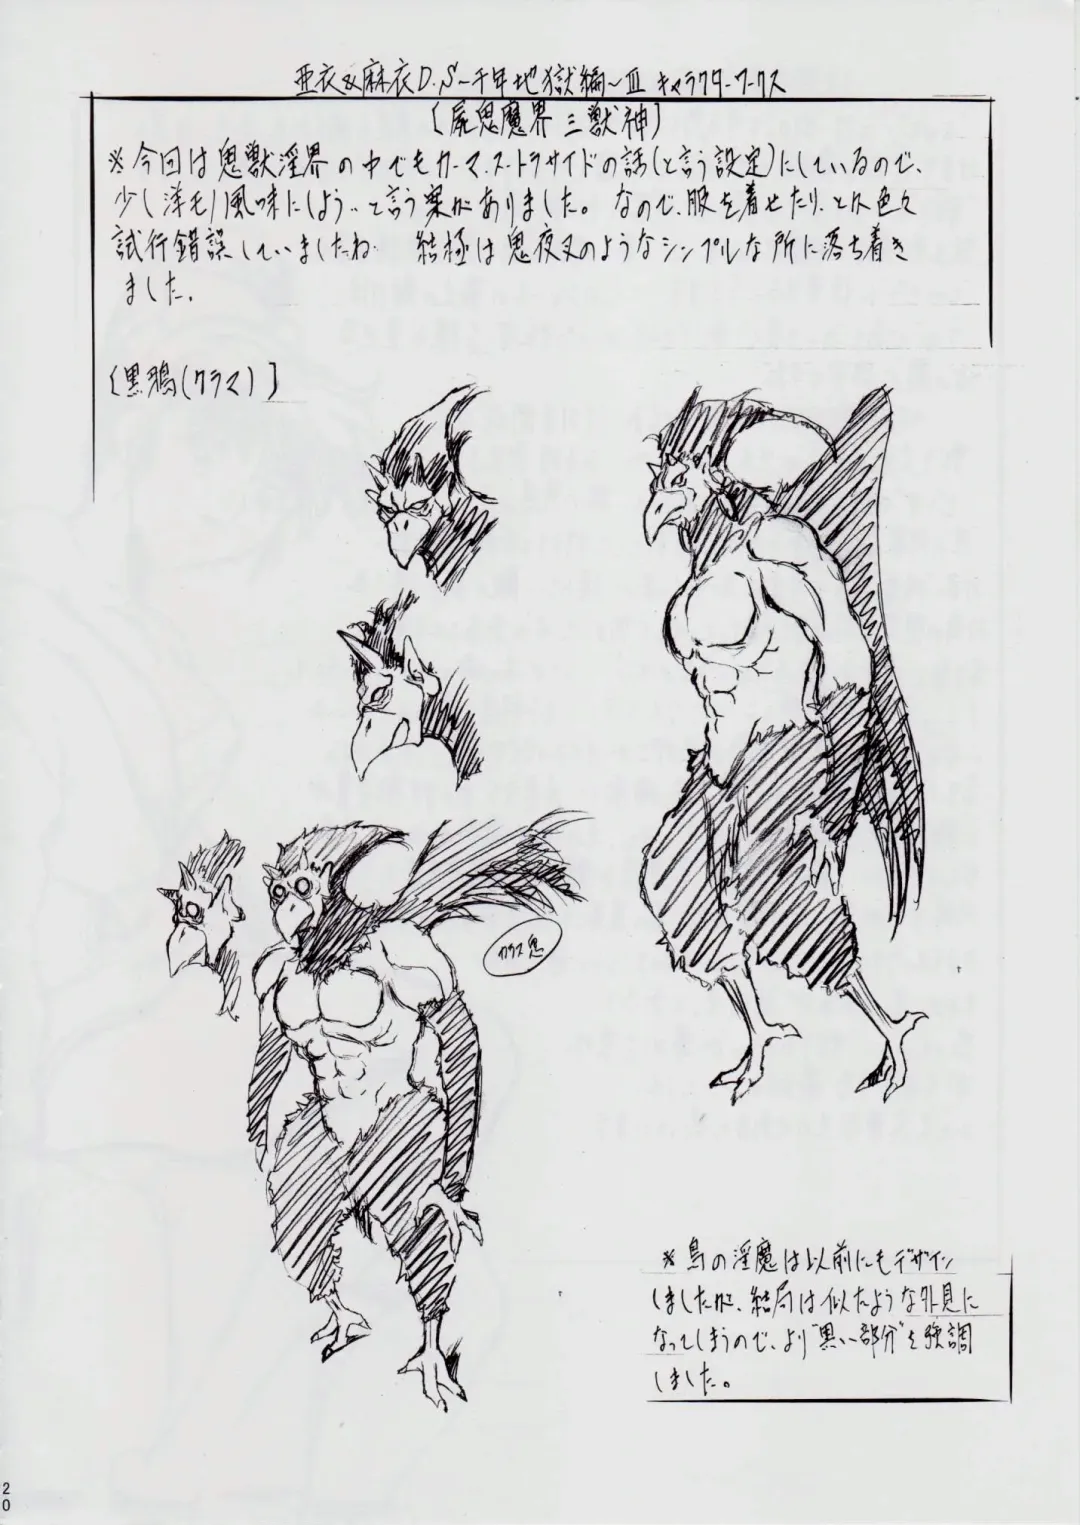 亜衣&麻衣D.S～千年地獄編～Ⅲ キャラクターワークス
〔屍鬼魔界三獣神〕
※今回は鬼獣淫界の中でもカーマ・スートラサイドの話(と言う設定)にしているので、
少し洋モノ風味にしよう‥と言う案がありました。なので、服を着せたり、と久色々
試行錯誤していましたね 結極は鬼夜叉のようなシンプルな所に落ち着き
ました。
〔黒鴉(クラマ)〕
カラス鬼
※鳥の淫魔は以前にもデザイン
しましたが、結局は似たような外見に
なってしまうので、より"黒い部分"を強調
しました。
20